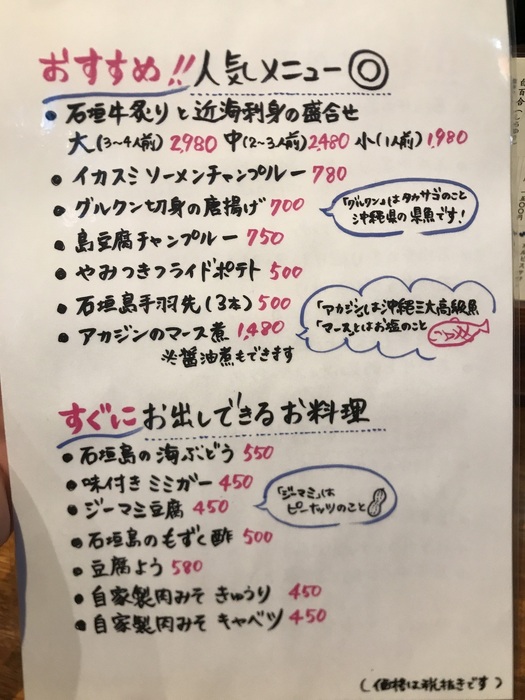 おすすめ!! 人気メニュー◎
• 石垣牛炙りと近海刺身の盛合せ
大(3~4人前) 2,980 中(2~3人前) 2,480 小(1人前) 1,980
• イカスミソーメンチャンプルー 780
• グルクン切身の唐揚げ 700
「グルクン」はタカサゴのこと
沖縄県の県魚です!
• 島豆腐チャンプルー 750
• やみつきフライドポテト 500
• 石垣島手羽先(3本) 500
• アカジンのマース煮 1,480
※醤油煮もできます
「アカジン」は沖縄三大高級魚
「マース」とはお塩のこと
すぐにお出しできるお料理
• 石垣島の海ぶどう 550
• 味付きミミガー 450
• ジーマミ豆腐 450
「ジーマミ」は
ピーナッツのこと
• 石垣島のもずく酢 500
• 豆腐よう 580
• 自家製肉みそ きゅうり 450
• 自家製肉みそ キャベツ 450
(価格は税抜きです)